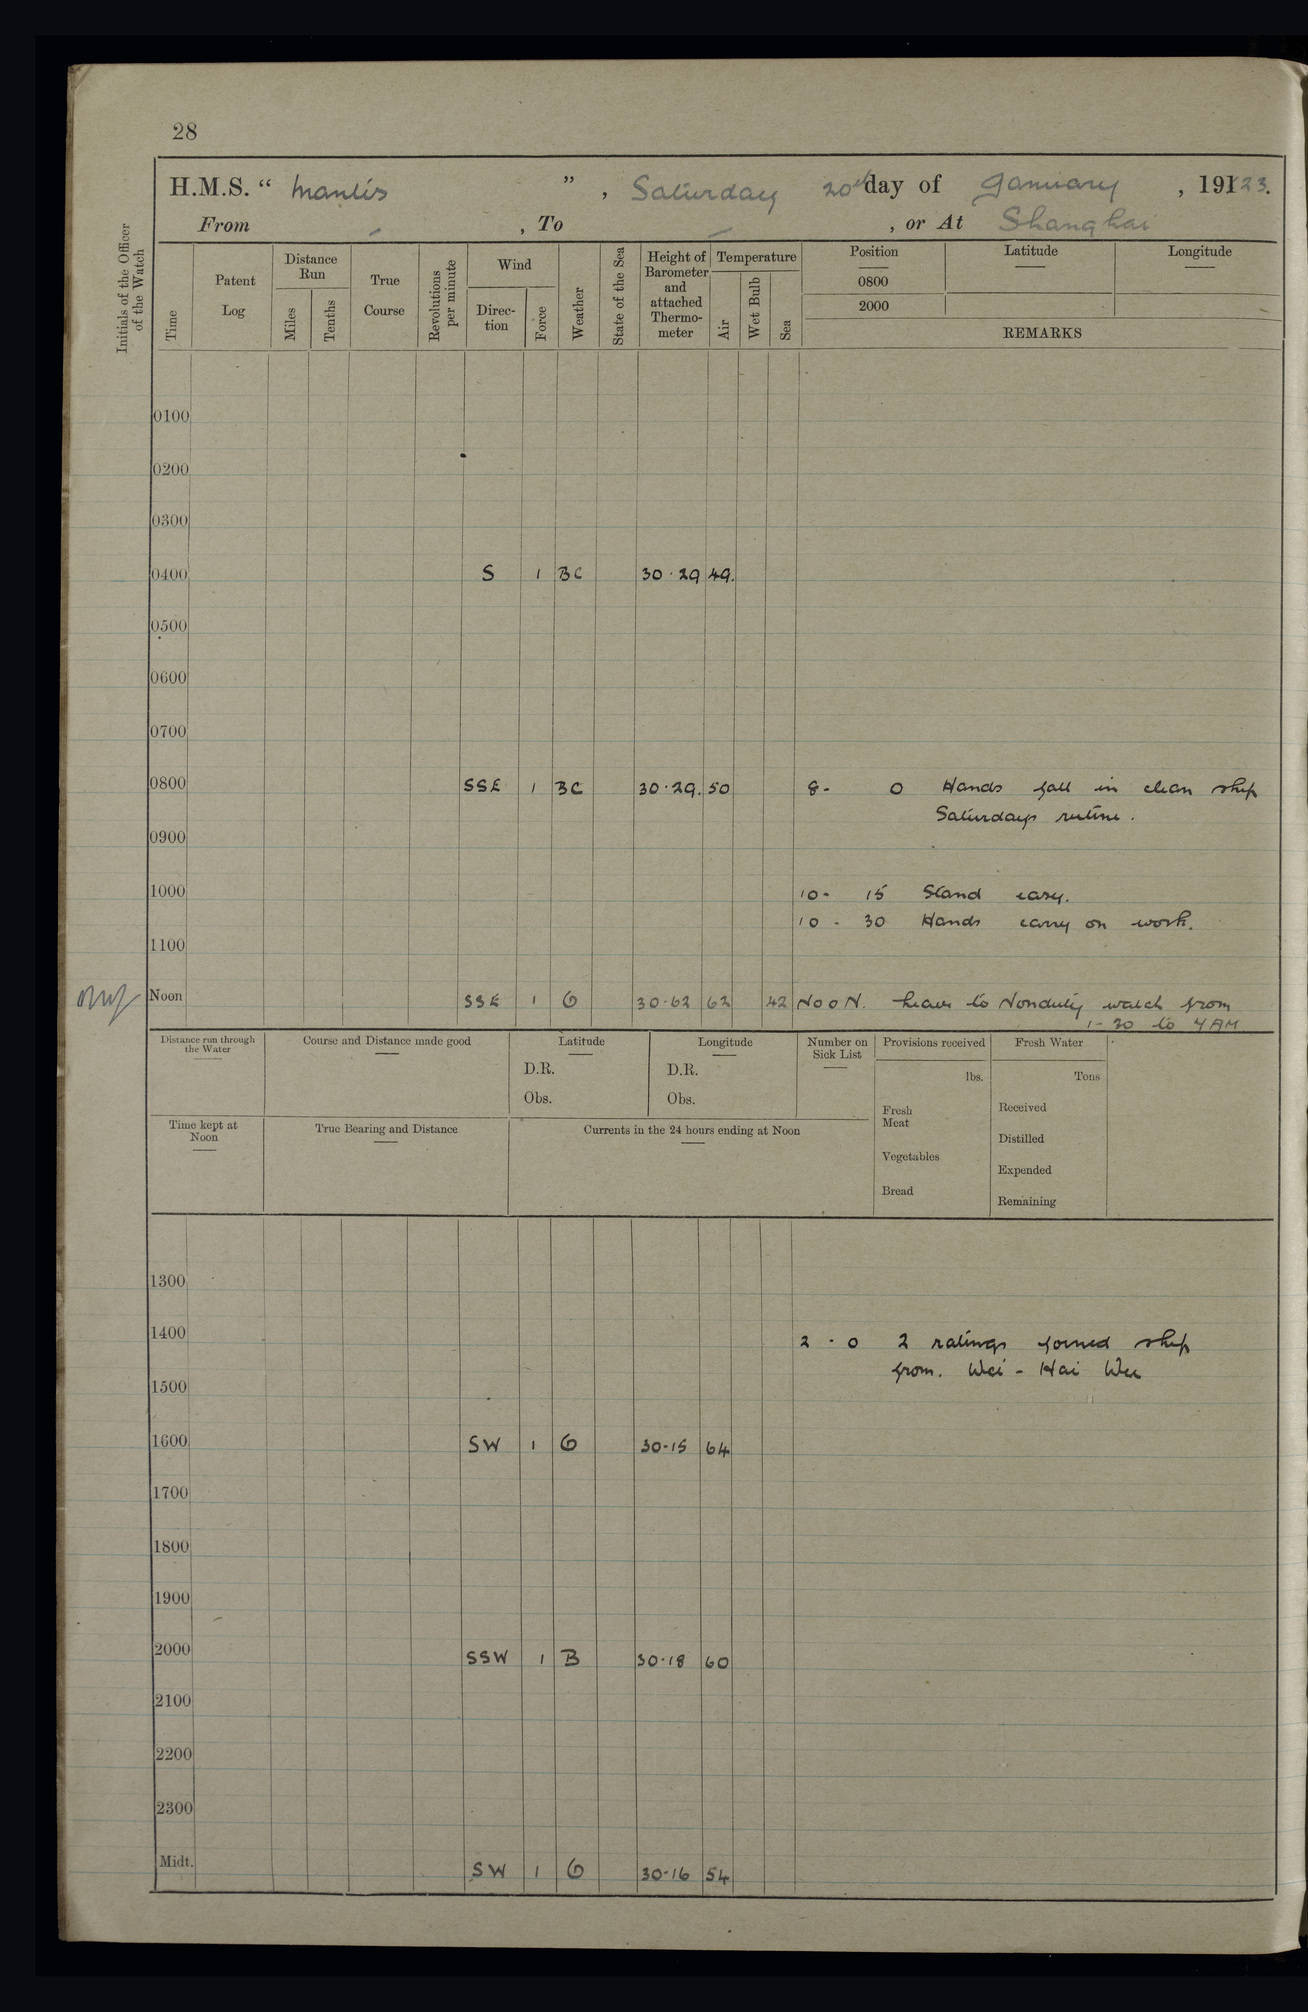 28
H.M.S. “ Mantis ” , Saturday 20th day of January , 19123.
From - , To - , or At Shanghai
Initials of the Officer of the Watch
Time
Patent Log
Distance Run
Miles
Tenths
True Course
Revolutions per minute
Wind
Direc-tion
Force
Weather
State of the Sea
Height of Barometer and attached Thermo-meter
Temperature
Air
Wet Bulb
Sea
Position
0800
2000
Latitude
Longitude
REMARKS
0100
0200
0300
0400 S 1 BC 30·29 49.
0500
0600
0700
0800 SSE 1 BC 30·29. 50 8- 0 Hands fall in clean ship
Saturdays rutine.
0900
1000 10- 15 Stand easy.
10 - 30 Hands carry on work.
1100
Noon SSE 1 O 30·62 62 42 NOON. Leave to Nonduty watch from
1-30 to 7AM
Distance run through the Water
Course and Distance made good
Latitude
D.R.
Obs.
Longitude
D.R.
Obs.
Number on Sick List
Provisions received
lbs.
Fresh Meat
Vegetables
Bread
Fresh Water
Tons
Received
Distilled
Expended
Remaining
Time kept at Noon
True Bearing and Distance
Currents in the 24 hours ending at Noon
1300
1400 2 · 0 2 ratings joined ship
from. Wei - Hai Wei
1500
1600 SW 1 O 30-15 64
1700
1800
1900
2000 SSW 1 B 30·18 60
2100
2200
2300
Midt. SW 1 O 30-16 54